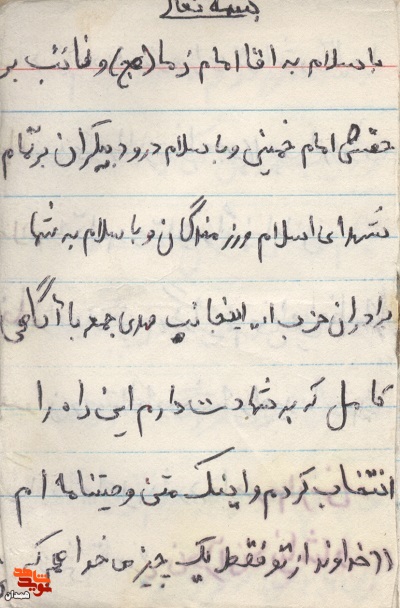 بسمه تعالی
با سلام به آقا امام زما (عج) و نائب بر
حقش امام خمینی و با سلام درود بیکران بر تمام
شهدای اسلام و رزمندگان و با سلام به شما
برادران حزب ا... اینجانب مهدی جمعه با آگاهی
کامل که به شهادت دارم این راه را
انتخاب کردم و اینک متن وصیتنامه ام
((خداوند از تو فقط یک چیز می خوا
همدان